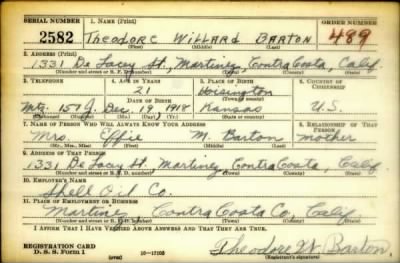 SERIAL NUMBER 1. NAME (Print) ORDER NUMBER
2582 Theodore Willard Barton 489
(First) (Middle) (Last)
2. ADDRESS (Print)
1331 De Lacey St., Martinez, Contra Costa, Calif.
(Number and street or R. F. D. number) (Town) (County) (State)
3. TELEPHONE 4. AGE IN YEARS 5. PLACE OF BIRTH 6. COUNTRY OF CITIZENSHIP
21 Hoisington
(Town or county)
Mtz. 157J. Dec. 19, 1918 Kansas U.S.
7. NAME OF PERSON WHO WILL ALWAYS KNOW YOUR ADDRESS 8. RELATIONSHIP OF THAT PERSON
Mrs. Effie M. Barton mother
(Mr., Mrs., Miss) (First) (Middle) (Last)
9. ADDRESS OF THAT PERSON
1331 De Lacey St. Martinez, Contra Costa, Calif.
(Number and street or R. F. D. number) (Town) (County) (State)
10. EMPLOYER'S NAME
Shell Oil Co.
11. PLACE OF EMPLOYMENT OR BUSINESS
Martinez, Contra Costa Co, Calif.
(Number and street or R. F. D. number) (Town) (County) (State)
I AFFIRM THAT I HAVE VERIFIED ABOVE ANSWERS AND THAT THEY ARE TRUE.
REGISTRATION CARD
D. S. S. Form 1 (over) Theodore W. Barton.
(Registrant's signature)